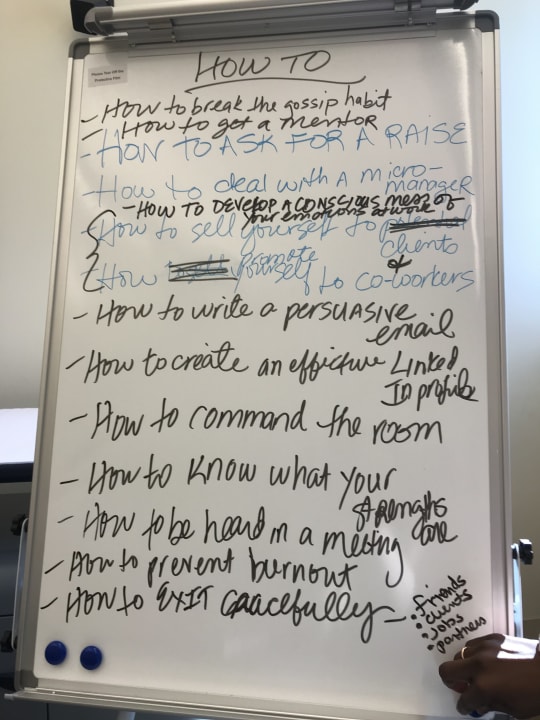 HOW TO
- How to break the gossip habit
- How to get a mentor
- HOW TO ASK FOR A RAISE
How to deal with a micro-
manager
- HOW TO DEVELOP A CONSCIOUS
your emotions at work
How to sell yourself to
clients
&
How promote yourself to co-workers
- How to write a persuasive
email
- How to create an effective Linked
In profile
- How to command the room
- How to know what your
strengths
are
- How to be heard in a meeting
- How to prevent burnout
- How to EXIT Gracefully -
• friends
• clients
• jobs
• partners